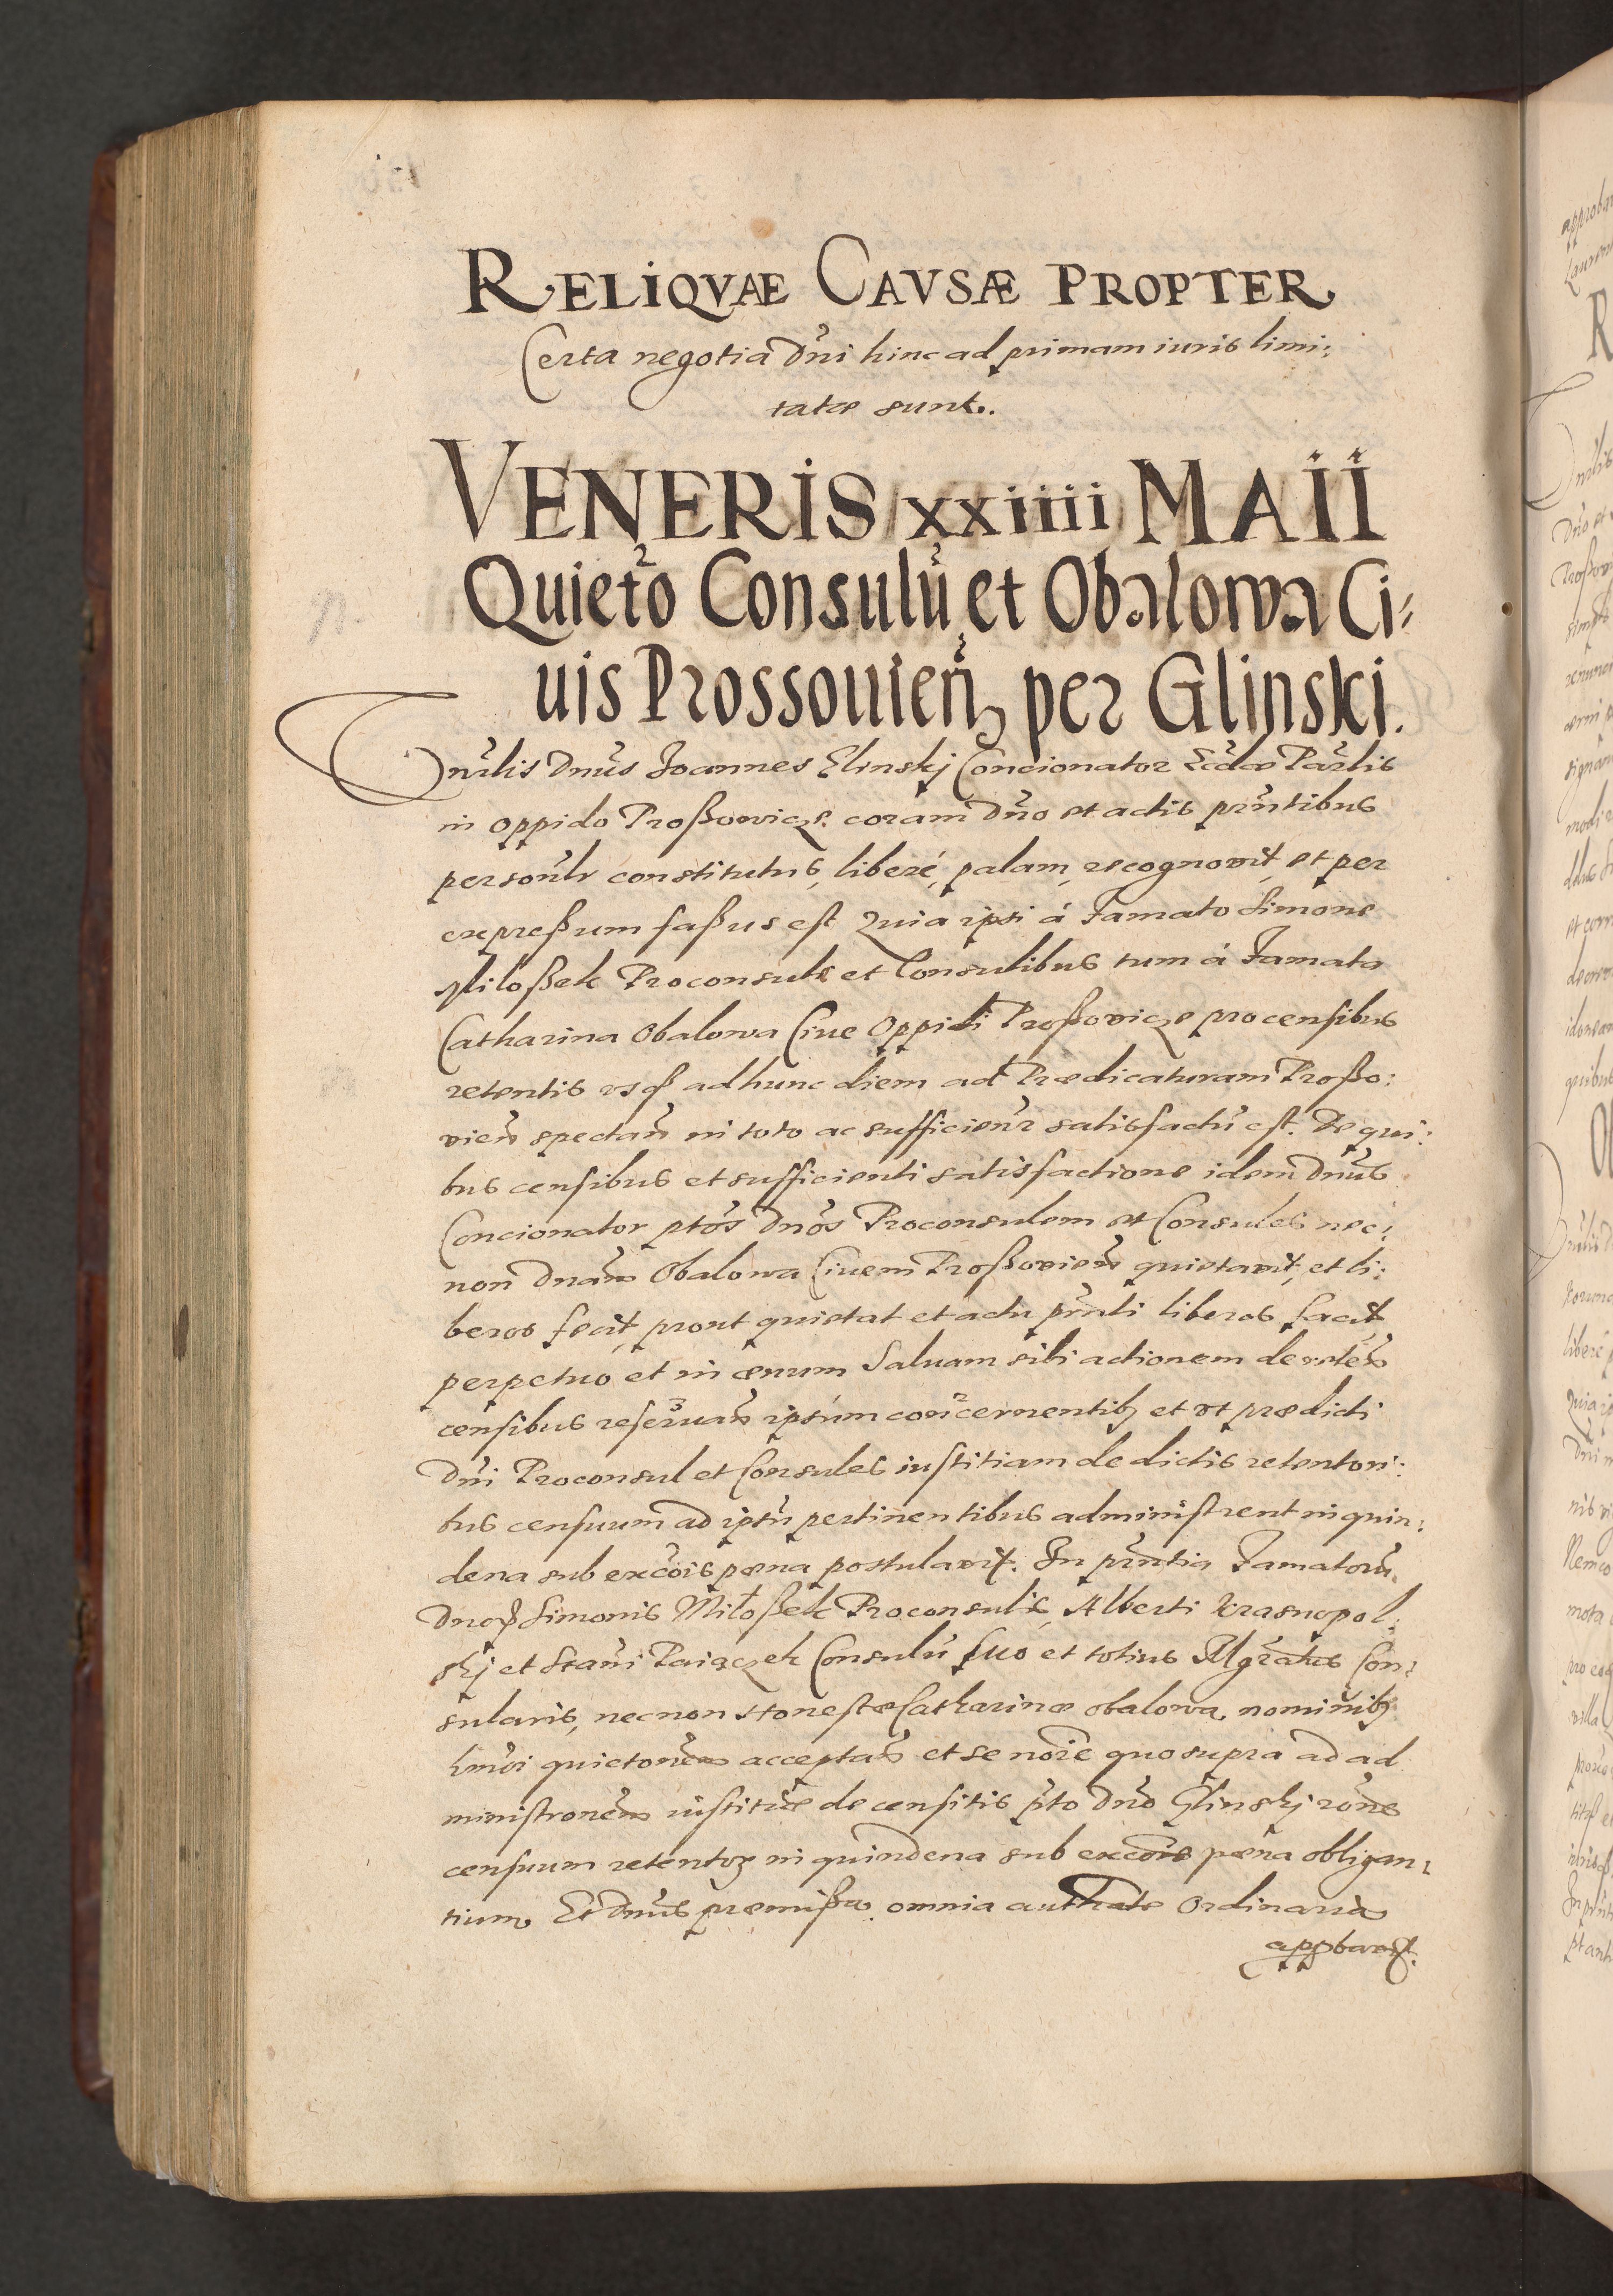 RELIQVAE CAVSÆ PROPTER
Certa negotia Dni hinc ad primam iuris limi:
tatæ sunt.
VENERIS xxiiii MAII
Quieto Consulũ et Obalowa Ci:
uis Prossouien per Glinski.
Joannes Glinskj Concionator Ecclæ Parlis
in oppido Proßowicze coram Dno et actis pñtibus
personlr constitutus, liberé, palam, recognovit, et per
expreßum faßus est Quia ipsi á Famato Simone
Miloßek Proconsule et Consulibus tum á Famata
Catharina Obalowa Ciue Oppidi Proßovicze pro censibus
retentis usq3 ad hunc diem ad Prædicaturam Proßo:
vien spectan in toto ac sufficienr satisfactũ est. De qui:
bus censibus et sufficienti satisfactione idem Dnus
Concionator ptos Dnos Proconsulem et Consules nec:
non Dnam Obalowa Ciuem Proßovien quietavit, et li:
beros fecit, prout quietat et actu pñti liberos facit
perpetuo et in æuum Saluam sibi actionem de
censibus reseruan ipsum concernentib3 et vt prædicti
Dni Proconsul et Consules iustitiam de dictis retentori:
bus censuum ad ipsũ pertinentibus administrent in quin:
dena sub excõis pæna postulavit. In pñtia Famatorũ
Dnor3 Simonis Miłoßek Proconsulis, Alberti Krasnopol:
skj et Stani Paiączek Consulũ suo et totius Mgratus Con:
sularis, necnon Honestæ Catharinæ Obalowa nominib3
hmoi quietonem acceptan et se noie quo supra ad ad
ministronem iustitiæ de censitis pto Dno Glinskj rõne
censuum retentor3 in quindena sub excõis pæna obligan:
tium. Et Dnus præmißa omnia authate Ordinaria
appbavit.